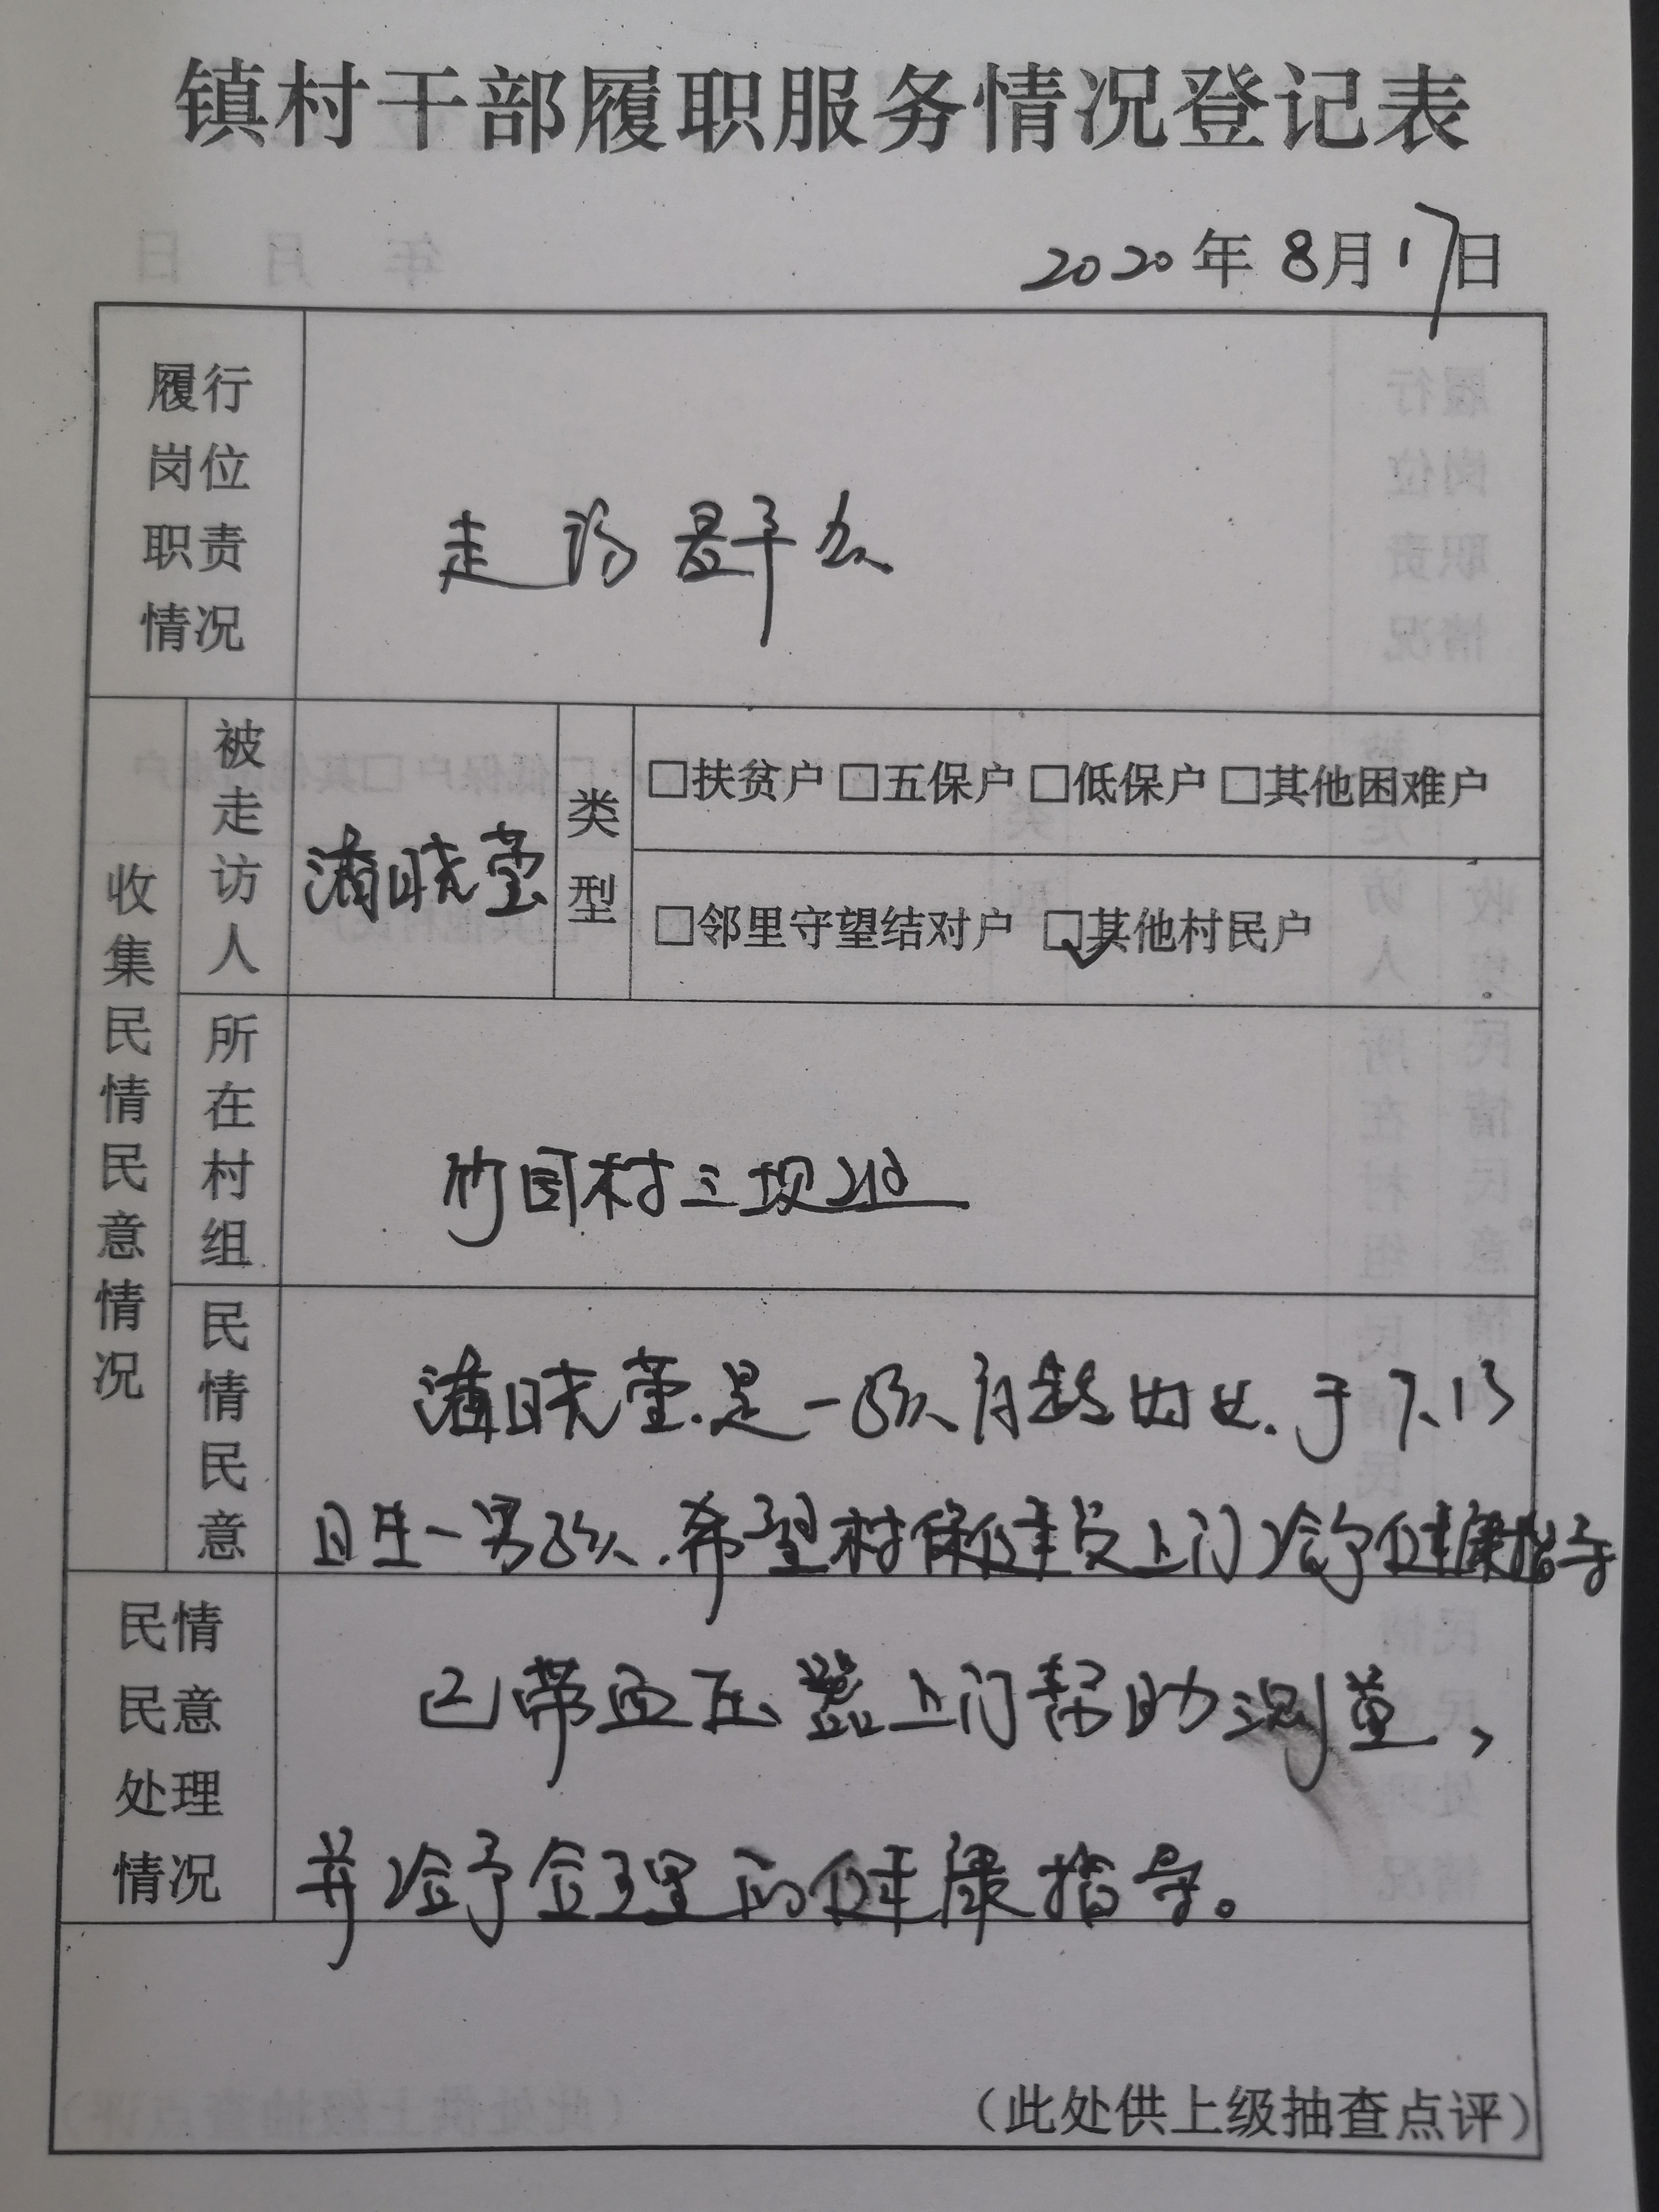 镇村干部履职服务情况登记表
2020年8月17日
履行岗位职责情况
走访群众
收集民情民意情况
被走访人
潘晓莹
类型
□扶贫户 □五保户 □低保户 □其他困难户
□邻里守望结对户 ☑其他村民户
所在村组
竹园村三坝组
民情民意
潘晓莹.是一孩育龄妇女.于7.13
日生一男孩.希望村保健员上门给予健康指导
民情民意处理情况
已带血压器上门帮助测量,
并给予合理的健康指导。
(此处供上级抽查点评)